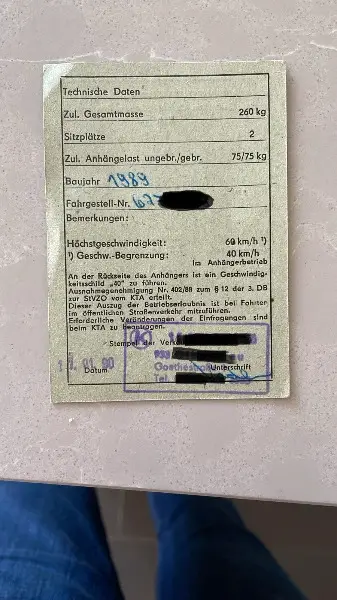 Technische Daten
Zul. Gesamtmasse 260 kg
Sitzplätze 2
Zul. Anhängelast ungebr./gebr. 75/75 kg
Baujahr 1989
Fahrgestell-Nr. 677
Bemerkungen:
Höchstgeschwindigkeit: 60 km/h ¹)
¹) Geschw.-Begrenzung: 40 km/h
im Anhängerbetrieb
An der Rückseite des Anhängers ist ein Geschwindig-
keitsschild „40" zu führen.
Ausnahmegenehmigung Nr. 402/88 zum § 12 der 3. DB
zur StVZO vom KTA erteilt.
Dieser Auszug der Betriebserlaubnis ist bei Fahrten
im öffentlichen Straßenverkehr mitzuführen.
Erforderliche Veränderungen der Eintragungen sind
beim KTA zu beantragen.
Stempel der Verk
933
01.90
Goethestraße
Datum Unterschrift
Tel.